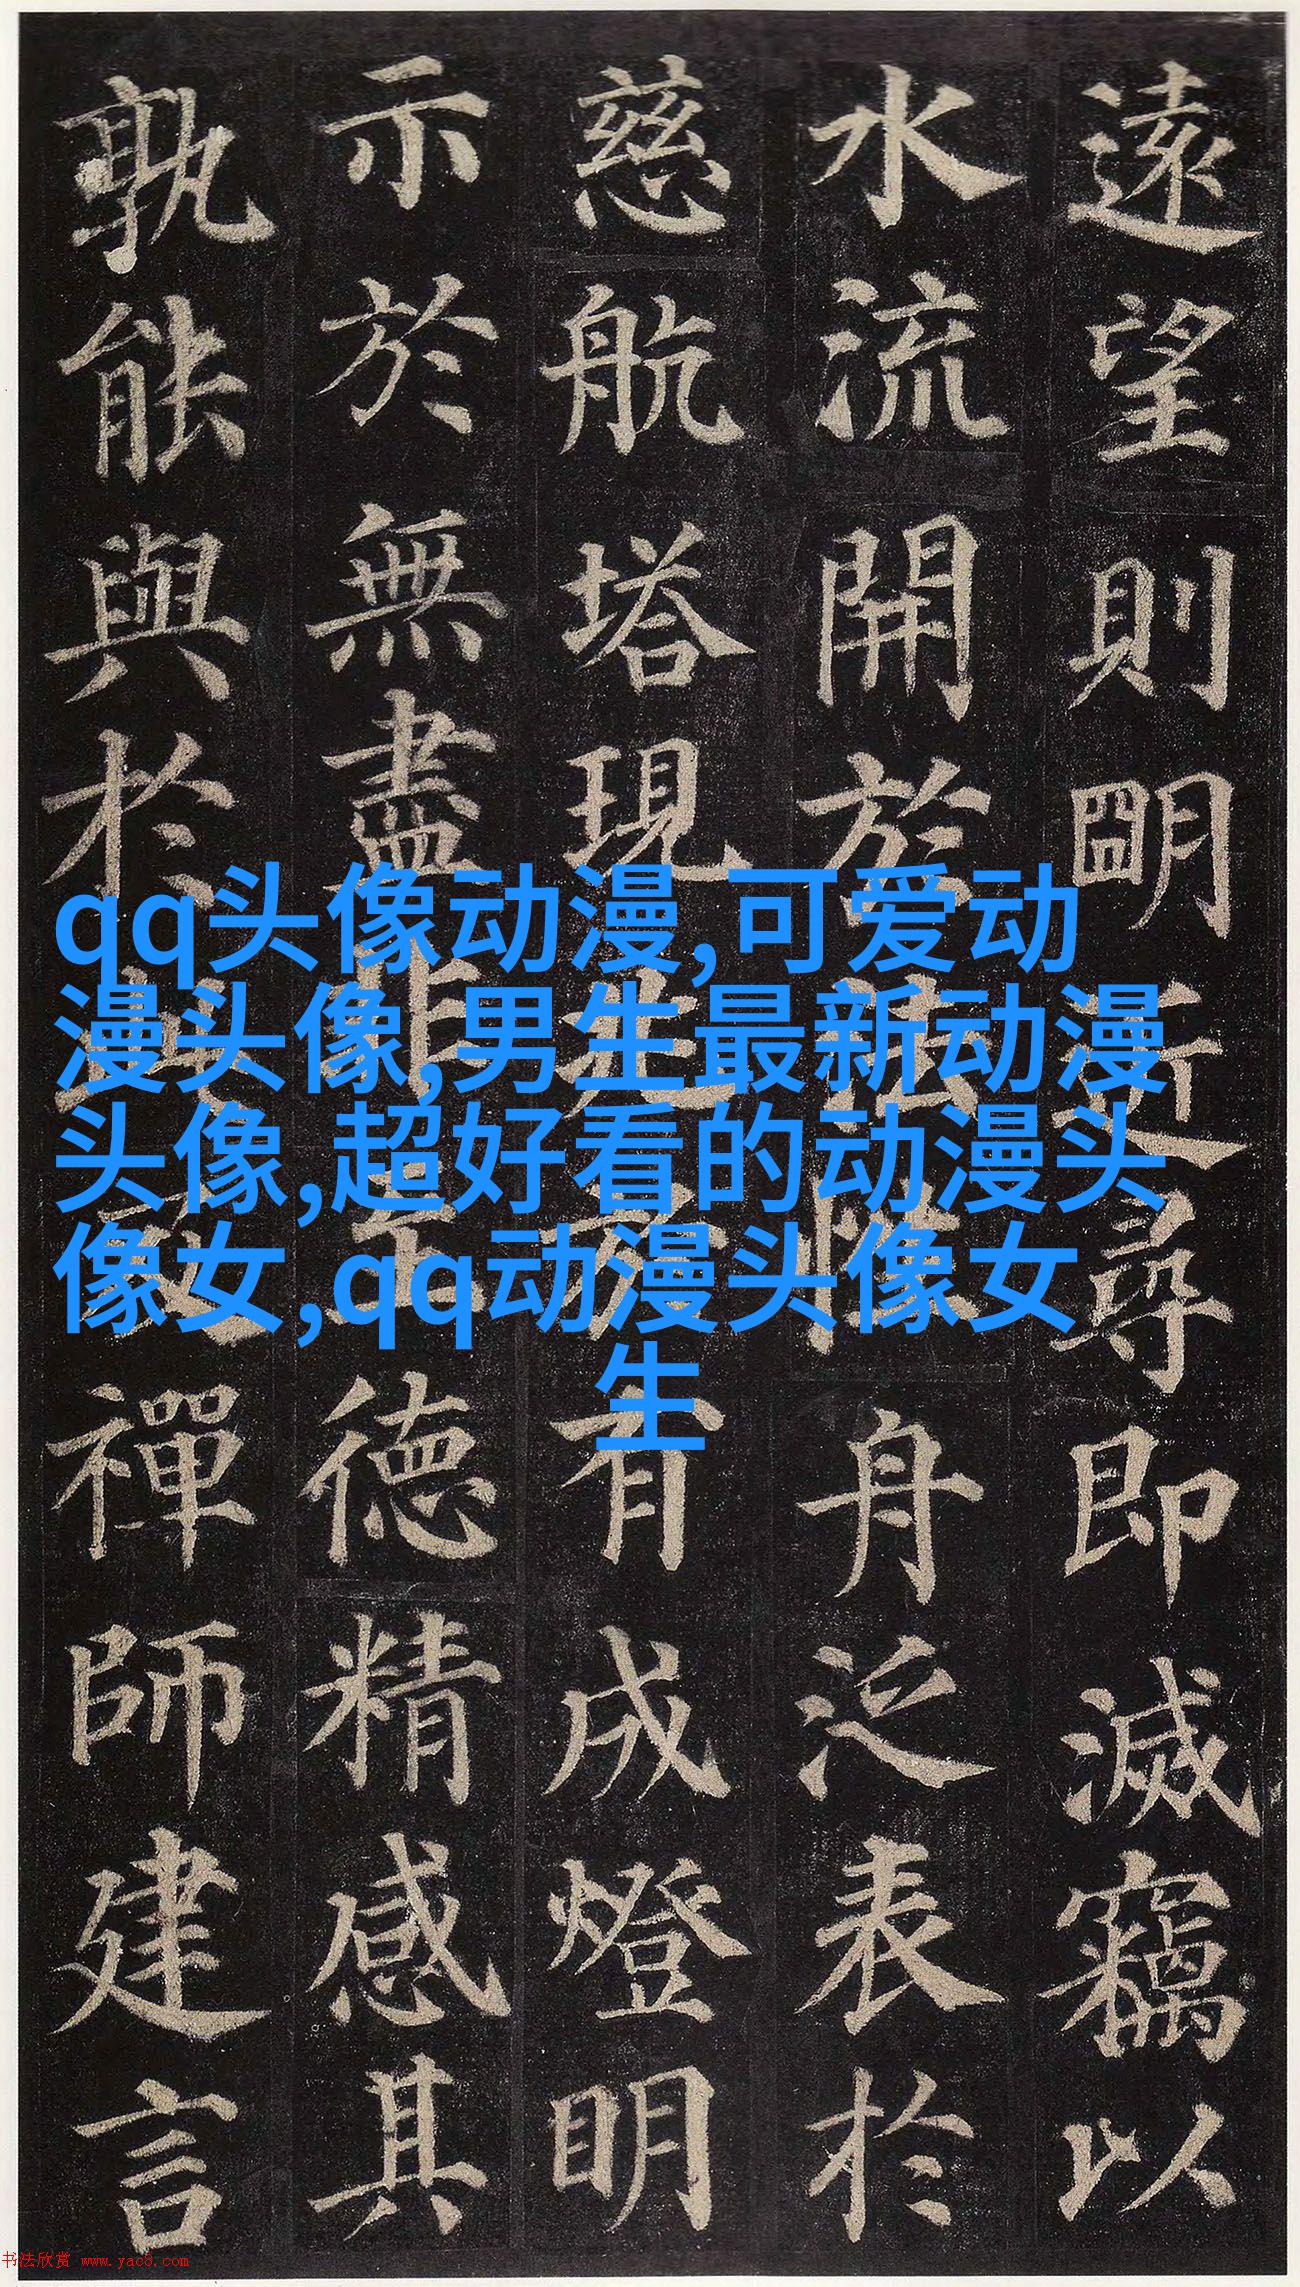 遠望則明近尋即滅竊以
水流開於法性舟泛表於
慈航塔現兆於有成燈明
示於無盡非至德精感其
孰能與於此及禪師建言
qq头像动漫,可爱动
漫头像,男生最新动漫
头像,超好看的动漫头
像女,qq动漫头像女
生
书法欣赏 www.yac8.com